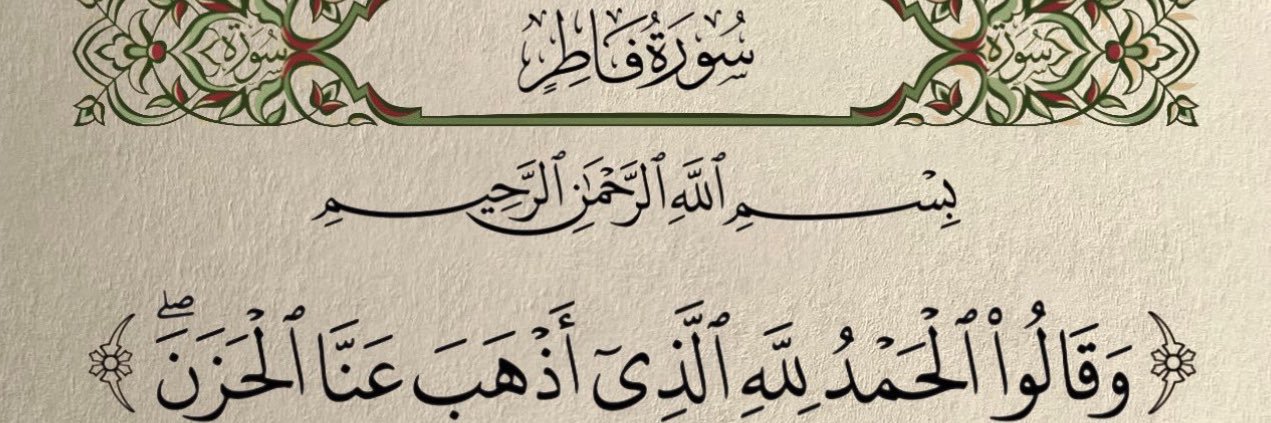 سُورَةُ فَاطِرٍ
سُورَة
سُورَة
بِسْمِ ٱللَّهِ ٱلرَّحْمَٰنِ ٱلرَّحِيمِ
﴿ وَقَالُوا۟ ٱلْحَمْدُ لِلَّهِ ٱلَّذِىٓ أَذْهَبَ عَنَّا ٱلْحَزَنَ ۖ ﴾